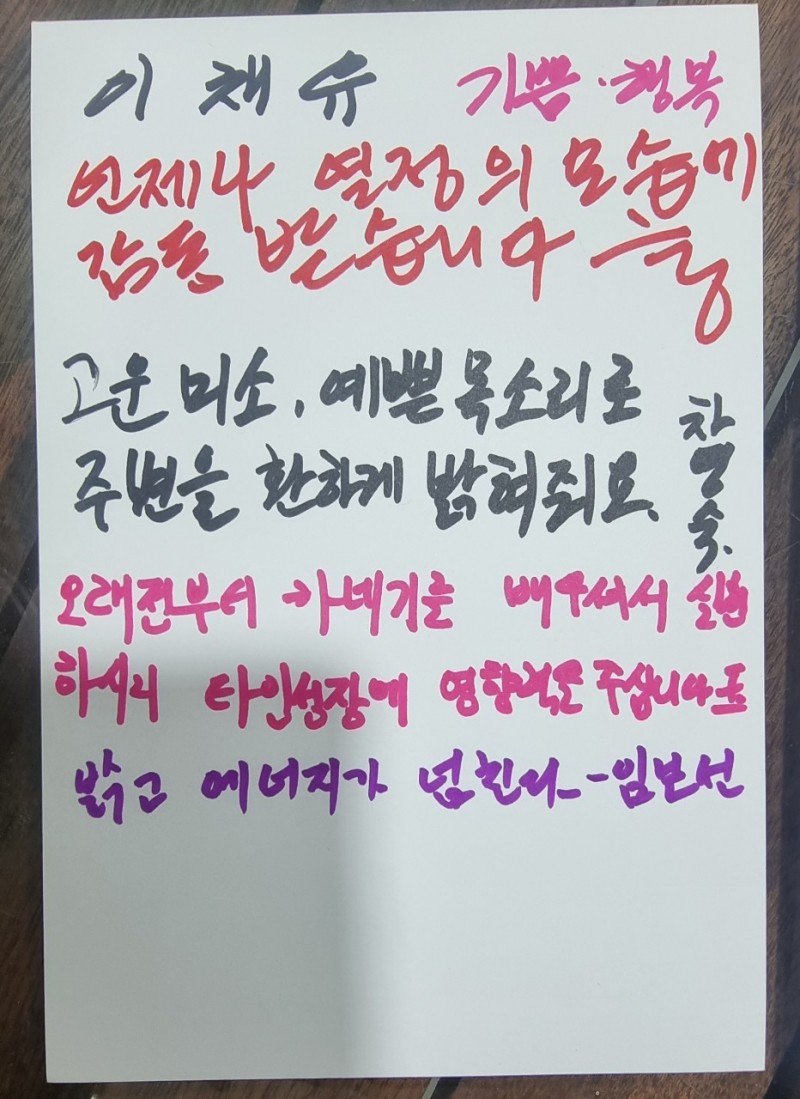 이 채유 기쁨·행복
언제나 열정의 모습이
감동 받습니다
고운 미소, 예쁜 목소리로
주변을 환하게 밝혀줘요.
오래전부터 카네기를 배우셔서 실천
하시니 타인성장에 영향력을 주십니다
밝고 에너지가 넘친다-임보선